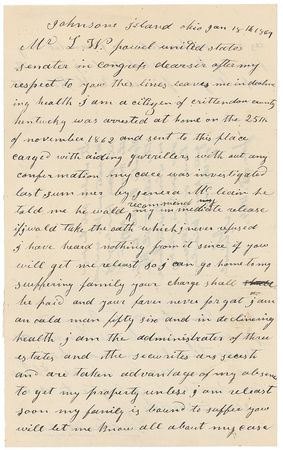 Johnsons island ohio Jan 18th 1864
Mr L W powel united states
senater in Congress dearsir after my
respect to you this lines leaves me in declin
ing health I am a citizen of crittendon county
kentucky was arrested at home on the 25th
of november 1862 and sent to this place
carged with aiding guerillers with out any
conformation my cace was investigated
last sum mer by general Mc lean he
told me he wald recommend my immediate release
if j wald take the oath which j never refused
j have heard nothing from it since if yow
will get me releast so j can go home to my
suffering family your charge shall
be paid and your faver never forgat j am
an oald man fifty six and in declinening
health j am the administrater of three
estates and the securites ars secesh
and are taken advantage of my absence
to get my property unless j am releast
soon my family is bound to suffer yow
will let me know all about my case